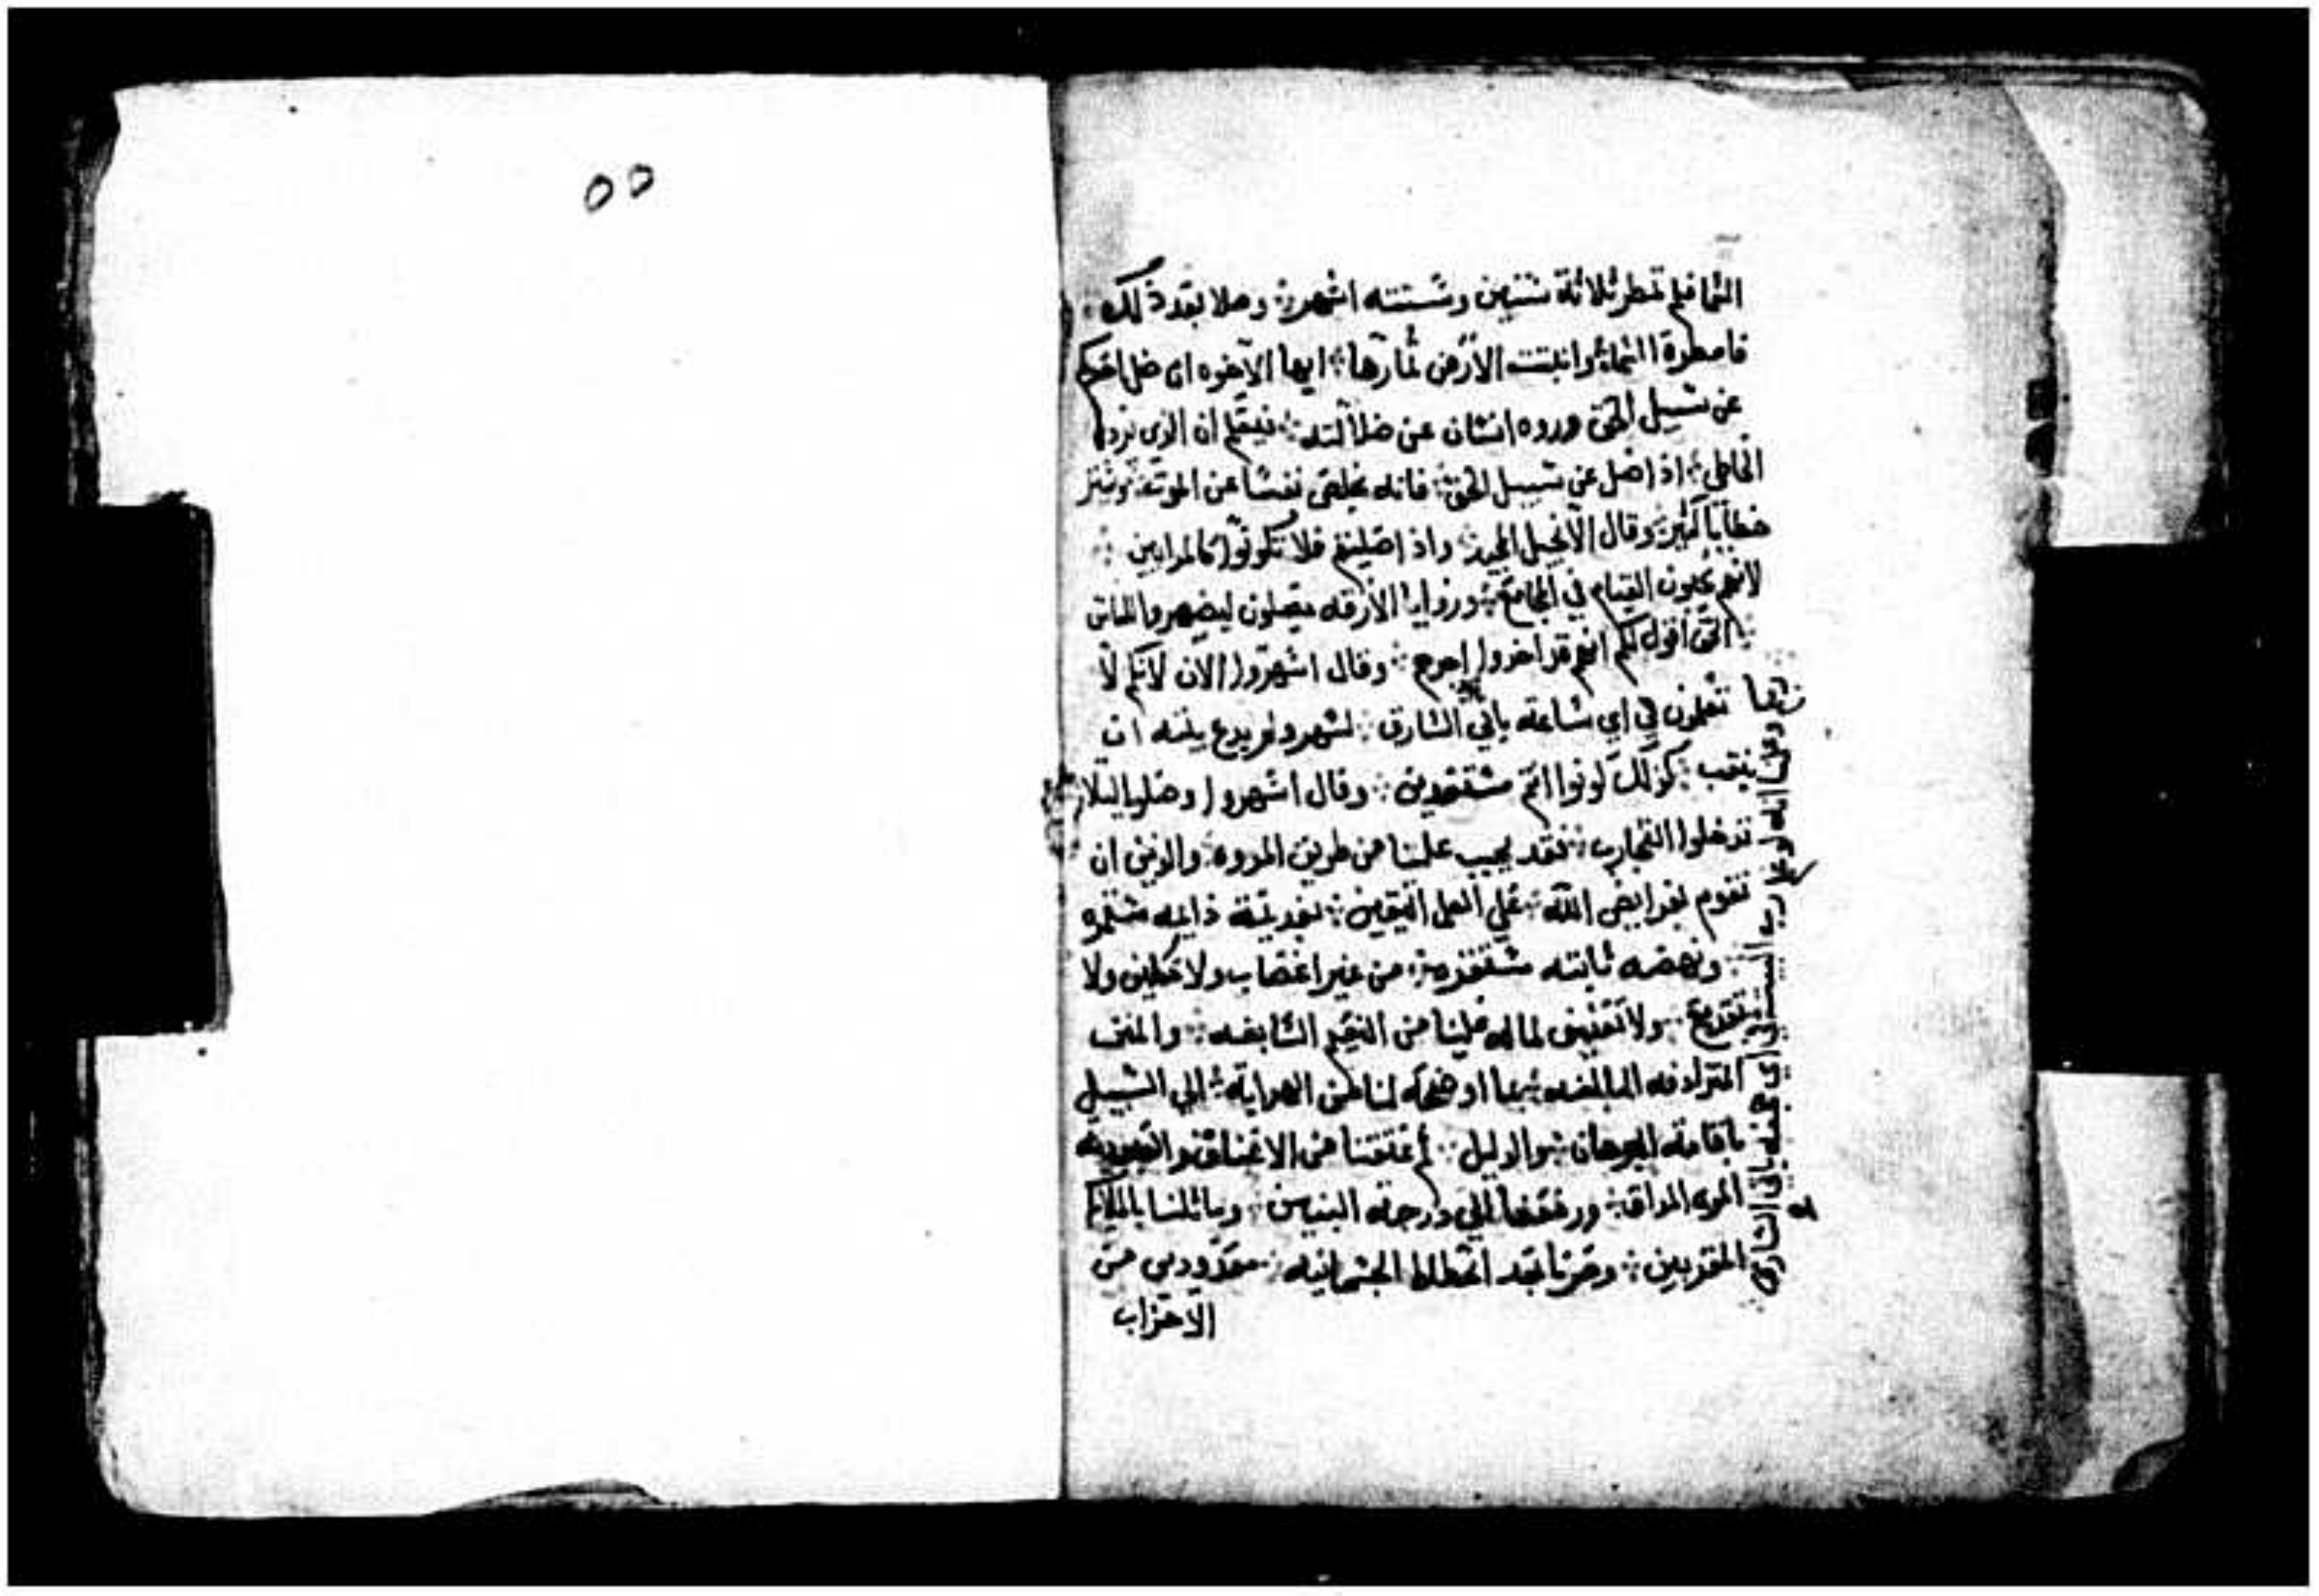 ٥٥
السما فلم تمطر ثلاثة سنين وستته اشهر ܀ وصلا بعد ذلك ܀
فامطرة السما ܀ وانبتت الارض ثمارها ܀ ايها الاخوه ان ضل احدكم
عن سبيل الحق ورده انسان عن ضلالته ܀ فيعلم ان الذي يرد
الخاطي ܀ اذا ضل عن سبيل الحق ܀ فانه يخلص نفسا عن الموت ܀ ويستر
خطايا كثير ܀ وقال الانجيل المجيد ܀ واذا صليتم فلا تكونوا كالمرايين ܀
لانهم يحبون القيام في المجامع ܀ وزوايا الازقه يصلون ليضهروا للناس
܀ الحق اقول لكم انهم قد اخدوا اجرهم ܀ وقال اسهروا الان لانكم لا
تعلمون في اي ساعته ياتي السارق ܀ لسهر ولم يدع بيته ان
ينقب ܀ كذلك كونوا انتم مستعدين ܀ وقال اسهروا وصلوا ليلا
تدخلوا التجارب ܀ فقد يجب علينا من طريق المروه ܀ والدين ان
نقوم بفرايض الله ܀ علي العمل اليقين ܀ دايمه مستمره
܀ ونهضه ثابته ܀ من غير اغتصاب ولا ولا
ولا لما له علينا من النعم السابغه ܀ والمنن
المترادفه البالغه ܀ بما اوضحه لنا من الهدايه ܀ الي السبيل
باقامته البرهان ܀ والدليل ܀ ثم عتقنا من والعبوديه
المره المذاق ܀ ورفعنا الي درجة البنين ܀ بالملايكه
المقربين ܀ وصرنا بعد الجسمانيه ܀ معدودين من
الاحزاب
وعلما انه لو علم رب البيت في اي هجعه ياتي السارق